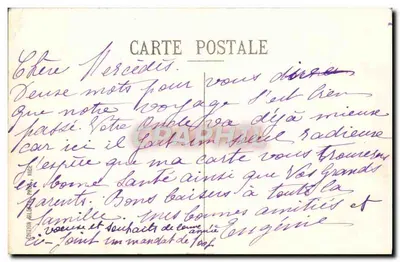 CARTE POSTALE
Chère Mercédès.
Deux mots pour vous dire
que notre voyage s'est bien
passé. Votre va déjà mieux
car ici il fait un radieux
J'espère que ma carte vous trouvera
en bonne santé ainsi que vos grands
parents. Bons baisers à toute la
famille. mes bonnes amitiés et
voeux et souhaits de bonne année Eugénie
ci-joint un mandat de